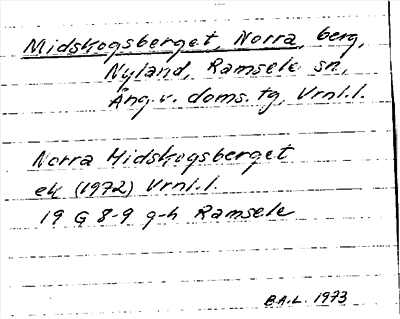 Midskogsberget, Norra, berg,
Nyland, Ramsele sn,
Ång. v. doms. tg, Vrnl.l.
Norra Midskogsberget
ek (1972) Vrnl.l.
19 G 8-9 g-h Ramsele
B.A.L. 1973